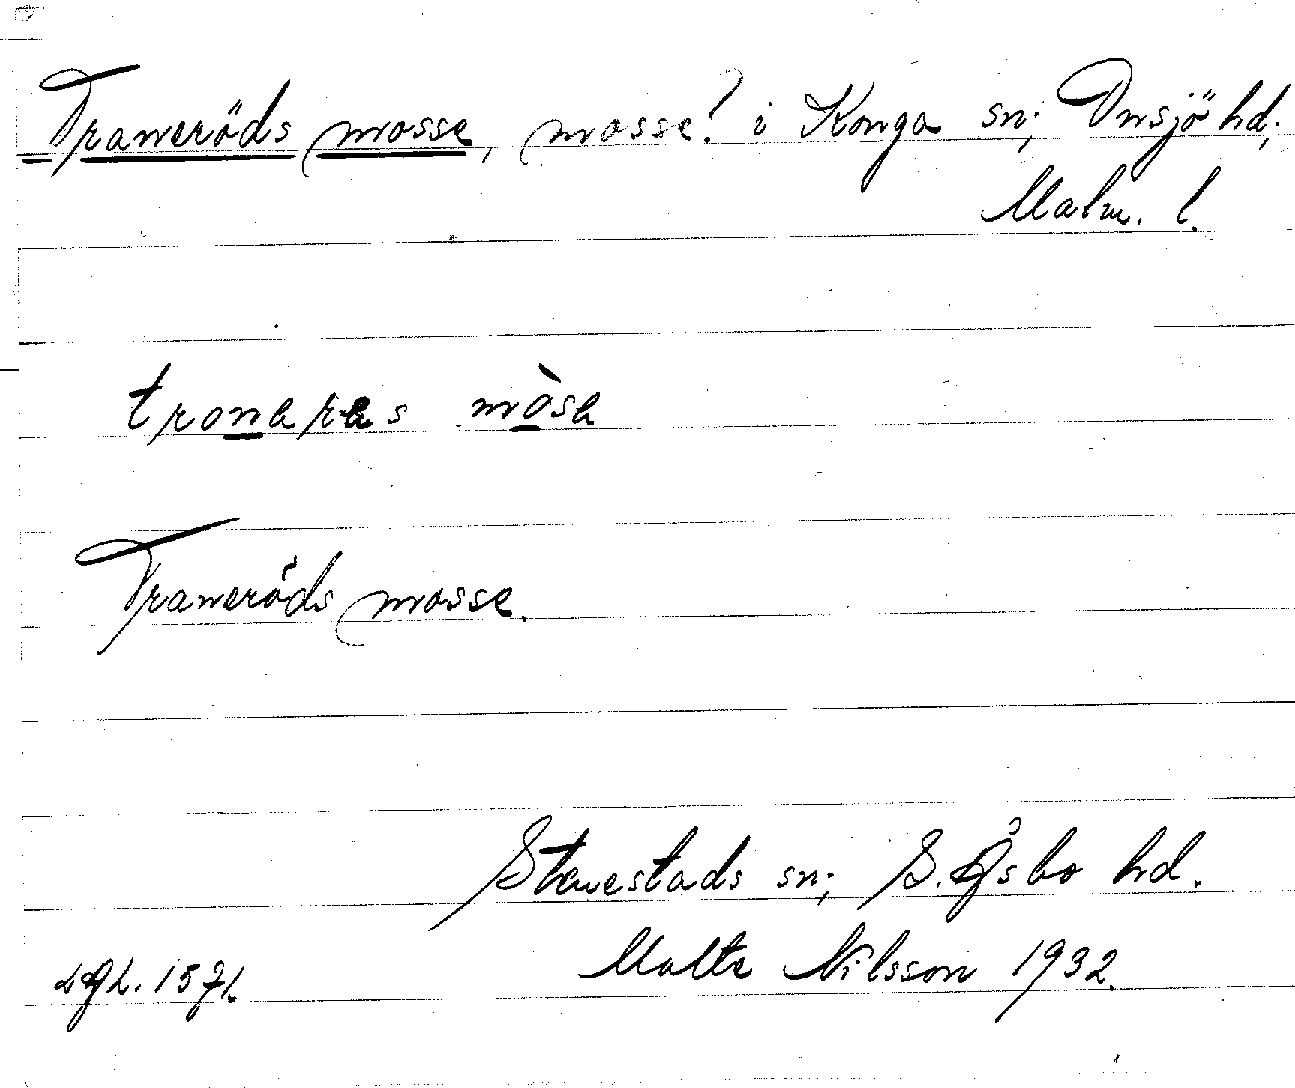 Traneröds mosse, mosse? i Konga sn; Onsjö hd;
Malm. l.
mòsa
Traneröds mosse.
Stenestads sn; S. Åsbo hd.
Malte Nilsson 1932.